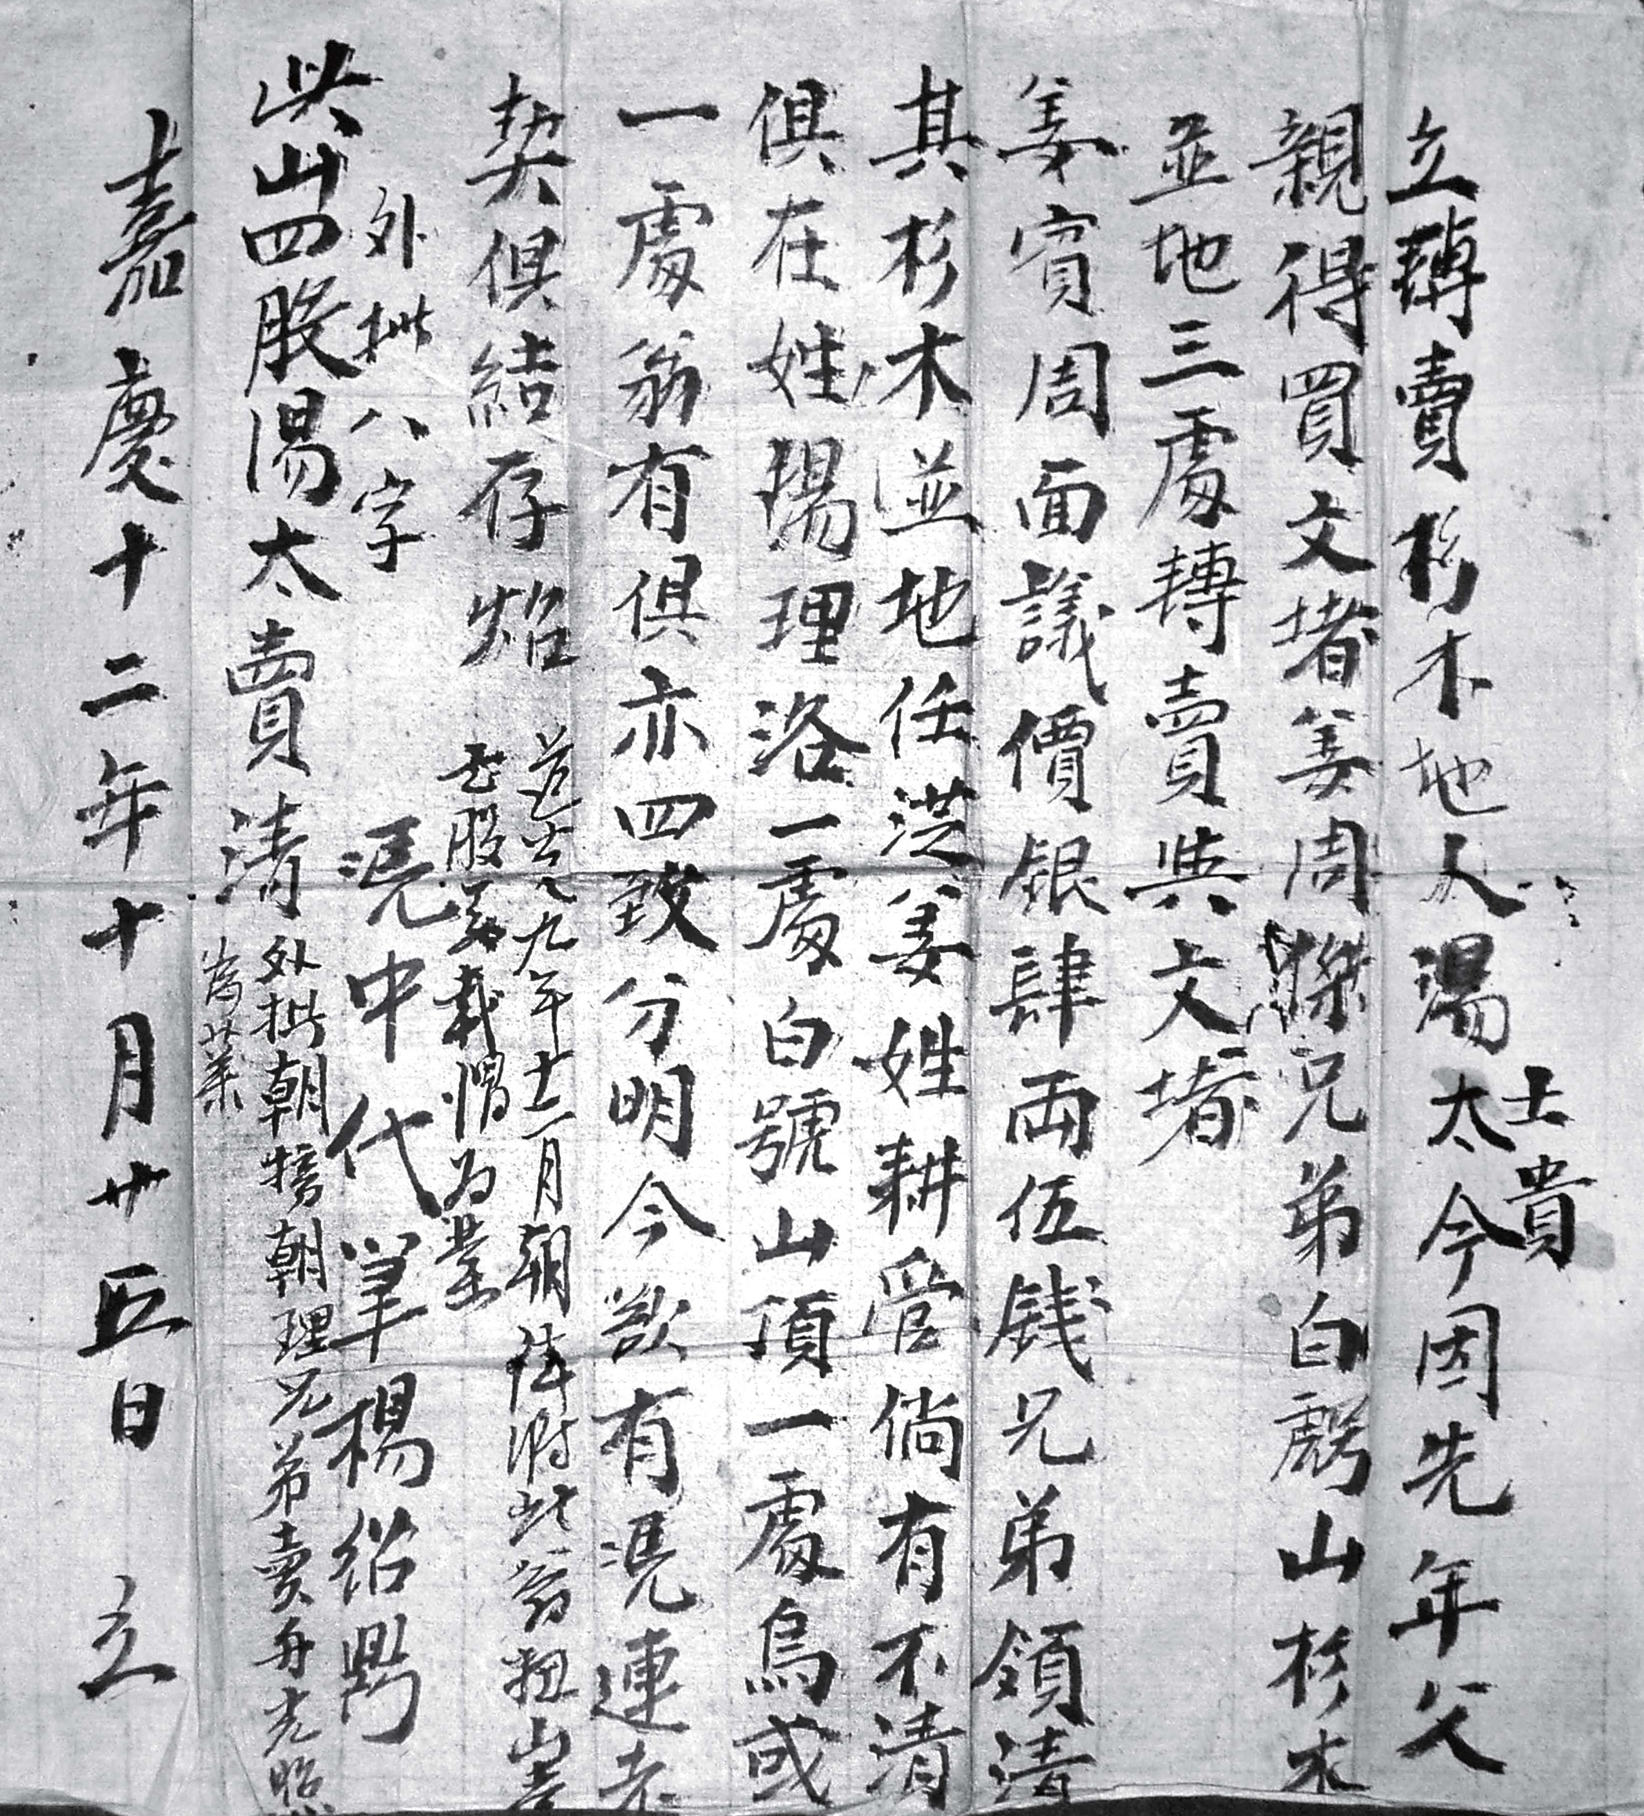 立轉賣杉木地人湯太今因先年父
士貴
親得買文堵姜周傑兄弟白號山杉木
並地三處轉賣與文堵
姜賓周面議價銀肆両伍錢兄弟領清
其杉木並地任姜姓耕管倘有不清
俱在姓楊理洛一處白號山頂一處烏或
一處翁有俱亦四致分明今欲有凭連老
契俱結存炤
九年十二月朝
股 載 為業
外批八字
凭中代筆楊紹
此山四股湯太賣清
外批朝 朝理兄弟賣與光照
為業
嘉慶十二年十月廿五日 立